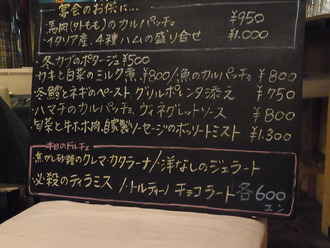 宴会のお供に…
・馬肉(外もも)のカルパッチョ ¥950
・イタリア産、4種ハムの盛り合せ ¥1.000
・冬カブのポタージュ¥500
・カキと白菜のミルク煮、¥800/魚のカルパッチョ ¥800
・冬鱈とネギのペースト グリルポレンタ添え ¥750
・ハマチのカルパッチョ、ヴィネグレットソース ¥800
・旬菜と牛ホホ肉、自製ソーセージのボッリートミスト ¥1.300
本日のドルチェ
焦がし砂糖のクレマ・カタラーナ/洋なしのジェラート
必殺のティラミス /トルティーノ チョコラート 各600
エン